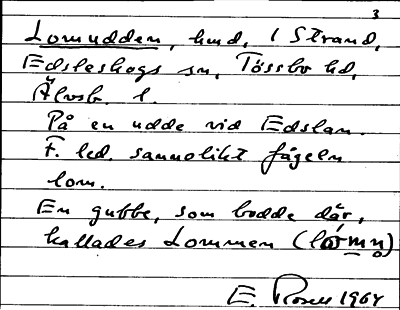 3
Lomudden, hmd, i Strand,
Edsleskogs sn, Tössbo hd,
Älvsb. l.
På en udde vid Edslan.
F. led. sannolikt fågeln
lom.
En gubbe, som bodde där,
kallades Lommen
E. Rosell 1964